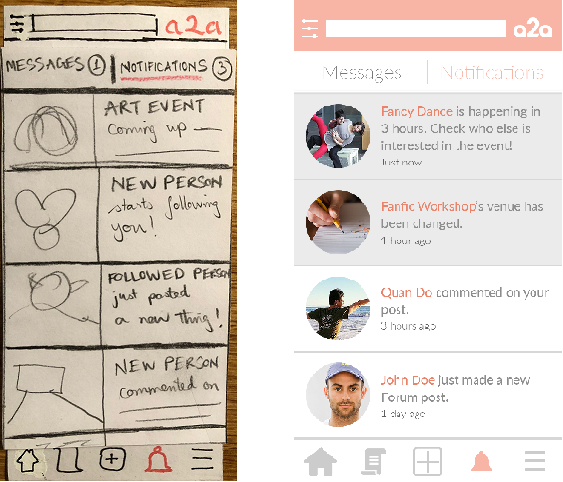 a2a
MESSAGES 1 NOTIFICATIONS 3
ART EVENT
Coming up
NEW PERSON
starts following
you!
FOLLOWED PERSON
just posted
a new thing!
NEW PERSON
commented on
a2a
Messages Notifications
Fancy Dance is happening in
3 hours. Check who else is
interested in the event!
Just now
Fanfic Workshop's venue has
been changed.
1 hour ago
Quan Do commented on your
post.
3 hours ago
John Doe just made a new
Forum post.
1 day ago